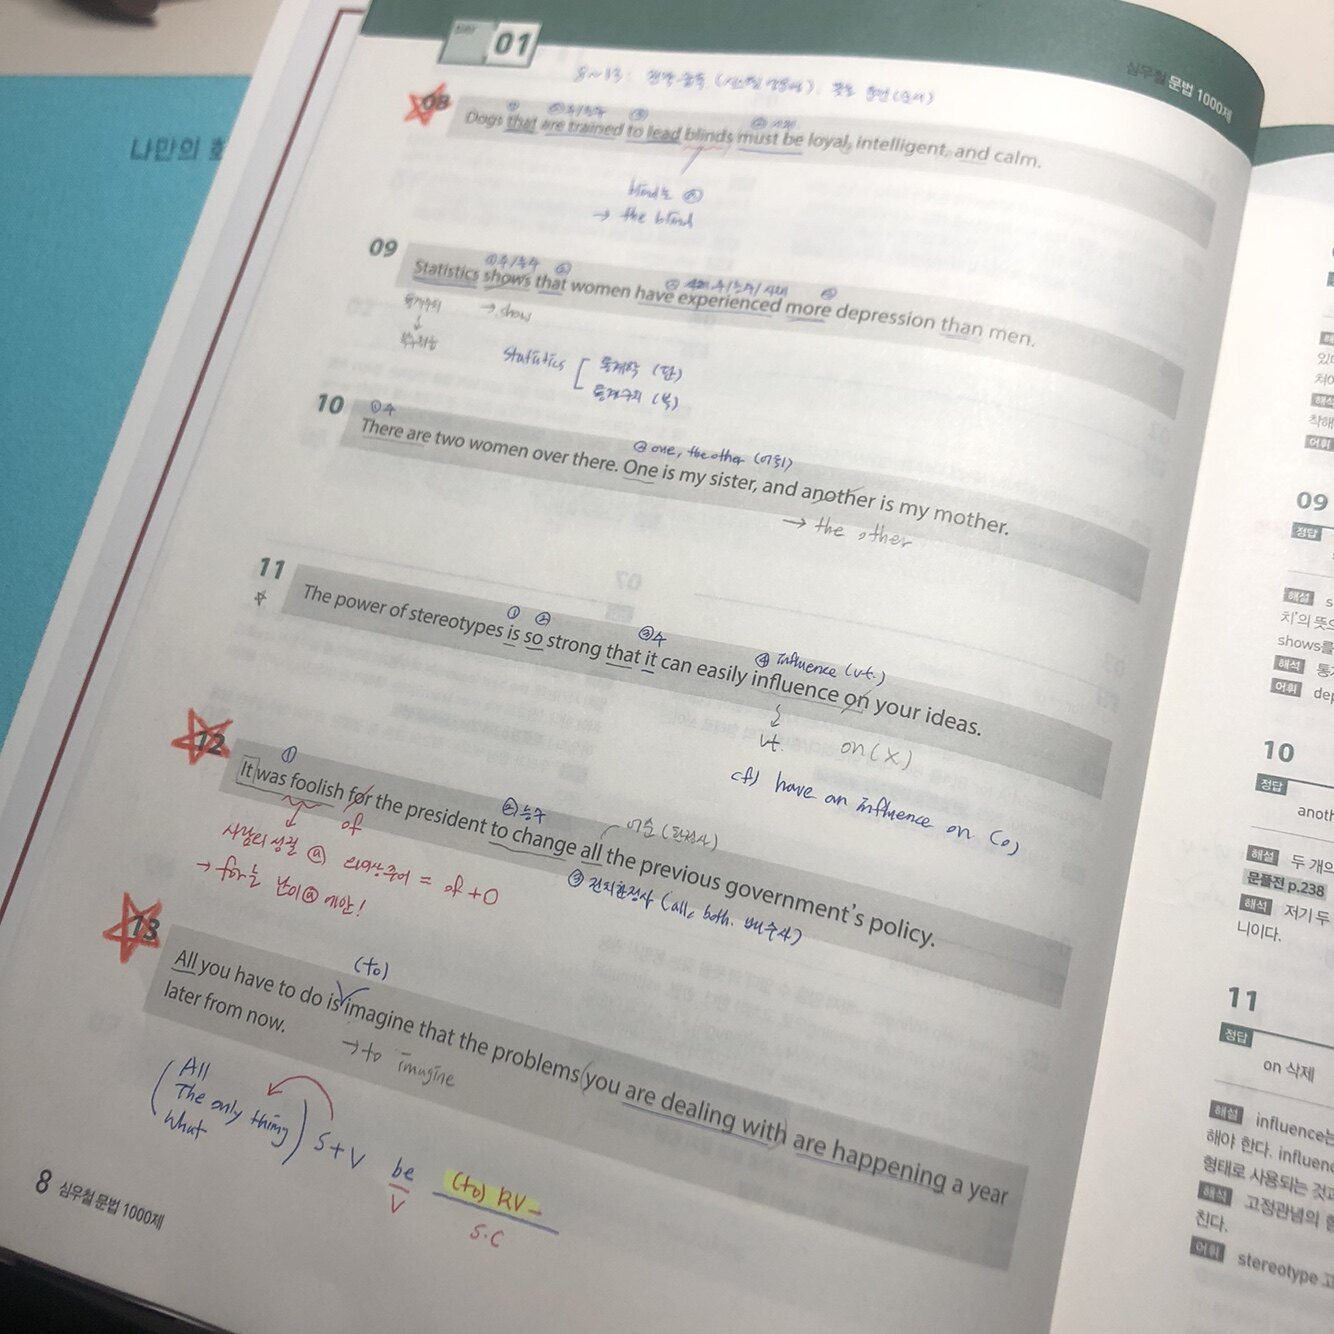 나만의
01
심우철 문법 1000제
8~13:
08
Dogs that are trained to lead blinds must be loyal, intelligent, and calm.
blind는 ⓐ
→ the blind
09
①수/능수 ②
Statistics shows that women have experienced more depression than men.
→ show
통계수치
↓
복수취급
statistics [ 통계학 (단)
통계수치 (복)
10
①수
② one, the other (어휘)
There are two women over there. One is my sister, and another is my mother.
→ the other
11
① ② ③수 ④ influence (vt.)
The power of stereotypes is so strong that it can easily influence on your ideas.
vt. on (X)
cf) have an influence on (O)
12
① ②능수
It was foolish for the president to change all the previous government's policy.
of
어순 (한정사)
③ 전치한정사 (all, both, 배수사)
사람의 성질 ⓐ 의미상주어 = of + O
→ for는 난이ⓐ에만!
13
(to)
All you have to do is imagine that the problems you are dealing with are happening a year
later from now.
→ to imagine
All
The only thing
What
S+V be (to) RV-
V S.C
8 심우철 문법 1000제
09
정답
해설
치'의 뜻으
shows를
해석 통계
어휘 dep
10
정답
anoth
해설 두 개의
문풀전 p.238
해석 저기 두
니이다.
11
정답
on 삭제
해설 influence는
해야 한다. influenc
형태로 사용되는 것과
해석 고정관념의 힘
친다.
어휘 stereotype 고